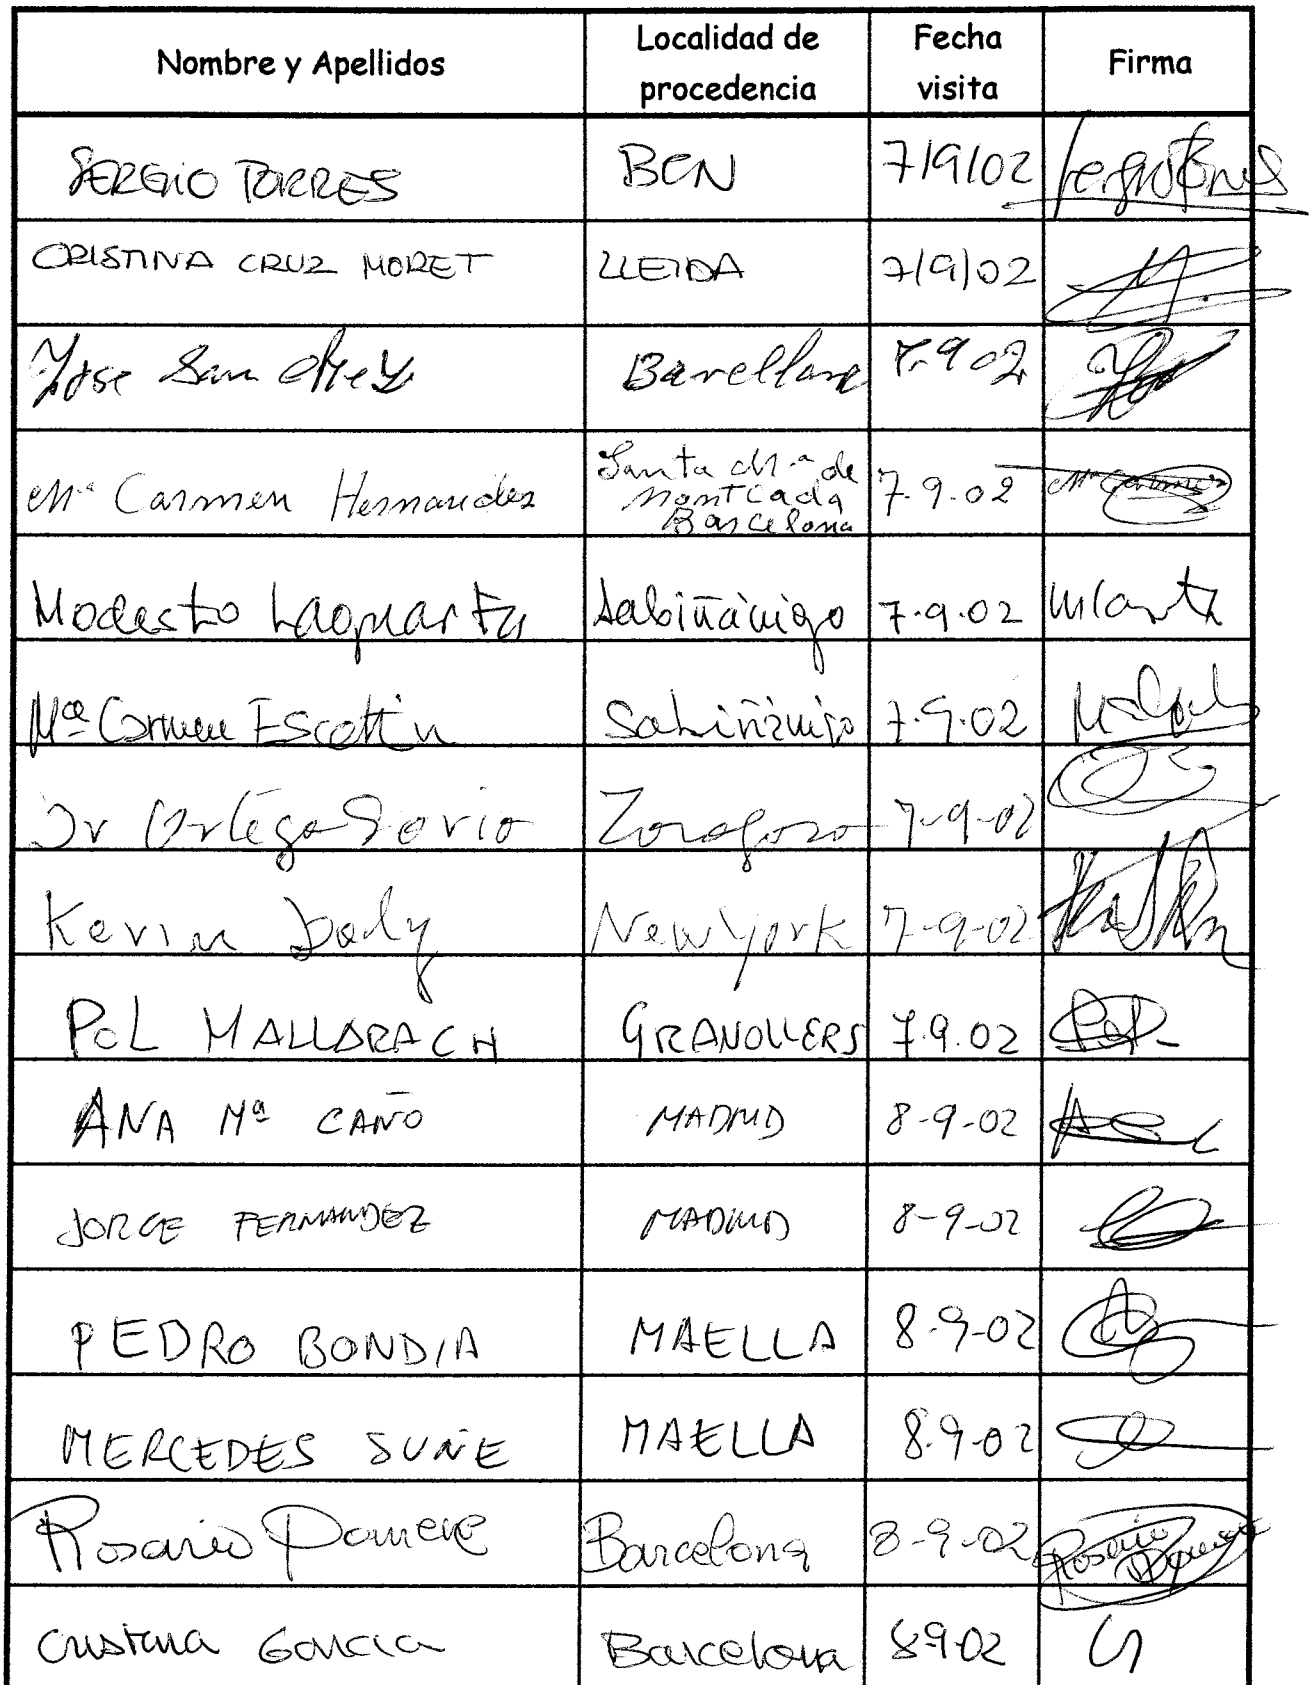 Nombre y Apellidos Localidad de procedencia Fecha visita Firma
SERGIO TORRES BCN 7/9/02
CRISTINA CRUZ MORET LLEIDA 7/9/02
Jose Sanchez Barcellona 7.9 02
Mª Carmen Hernandez Santa Mª de Montcada Barcelona 7.9.02 Mª Carmen
Modesto Laguarta Sabiñánigo 7.9.02
Mª Carmen Escartin Sabiñánigo 7.9.02
Zaragoza 7-9-02
Kevin Daly New York 7-9-02
POL MALLARACH GRANOLLERS 7.9.02 Pol
ANA Mª CAÑO MADRID 8-9-02
JORGE FERNANDEZ MADRID 8-9-02
PEDRO BONDIA MAELLA 8-9-02
MERCEDES SUÑE MAELLA 8.9-02
Rosario Barcelona 8-9-02 Rosario
Cristina Garcia Barcelona 8902